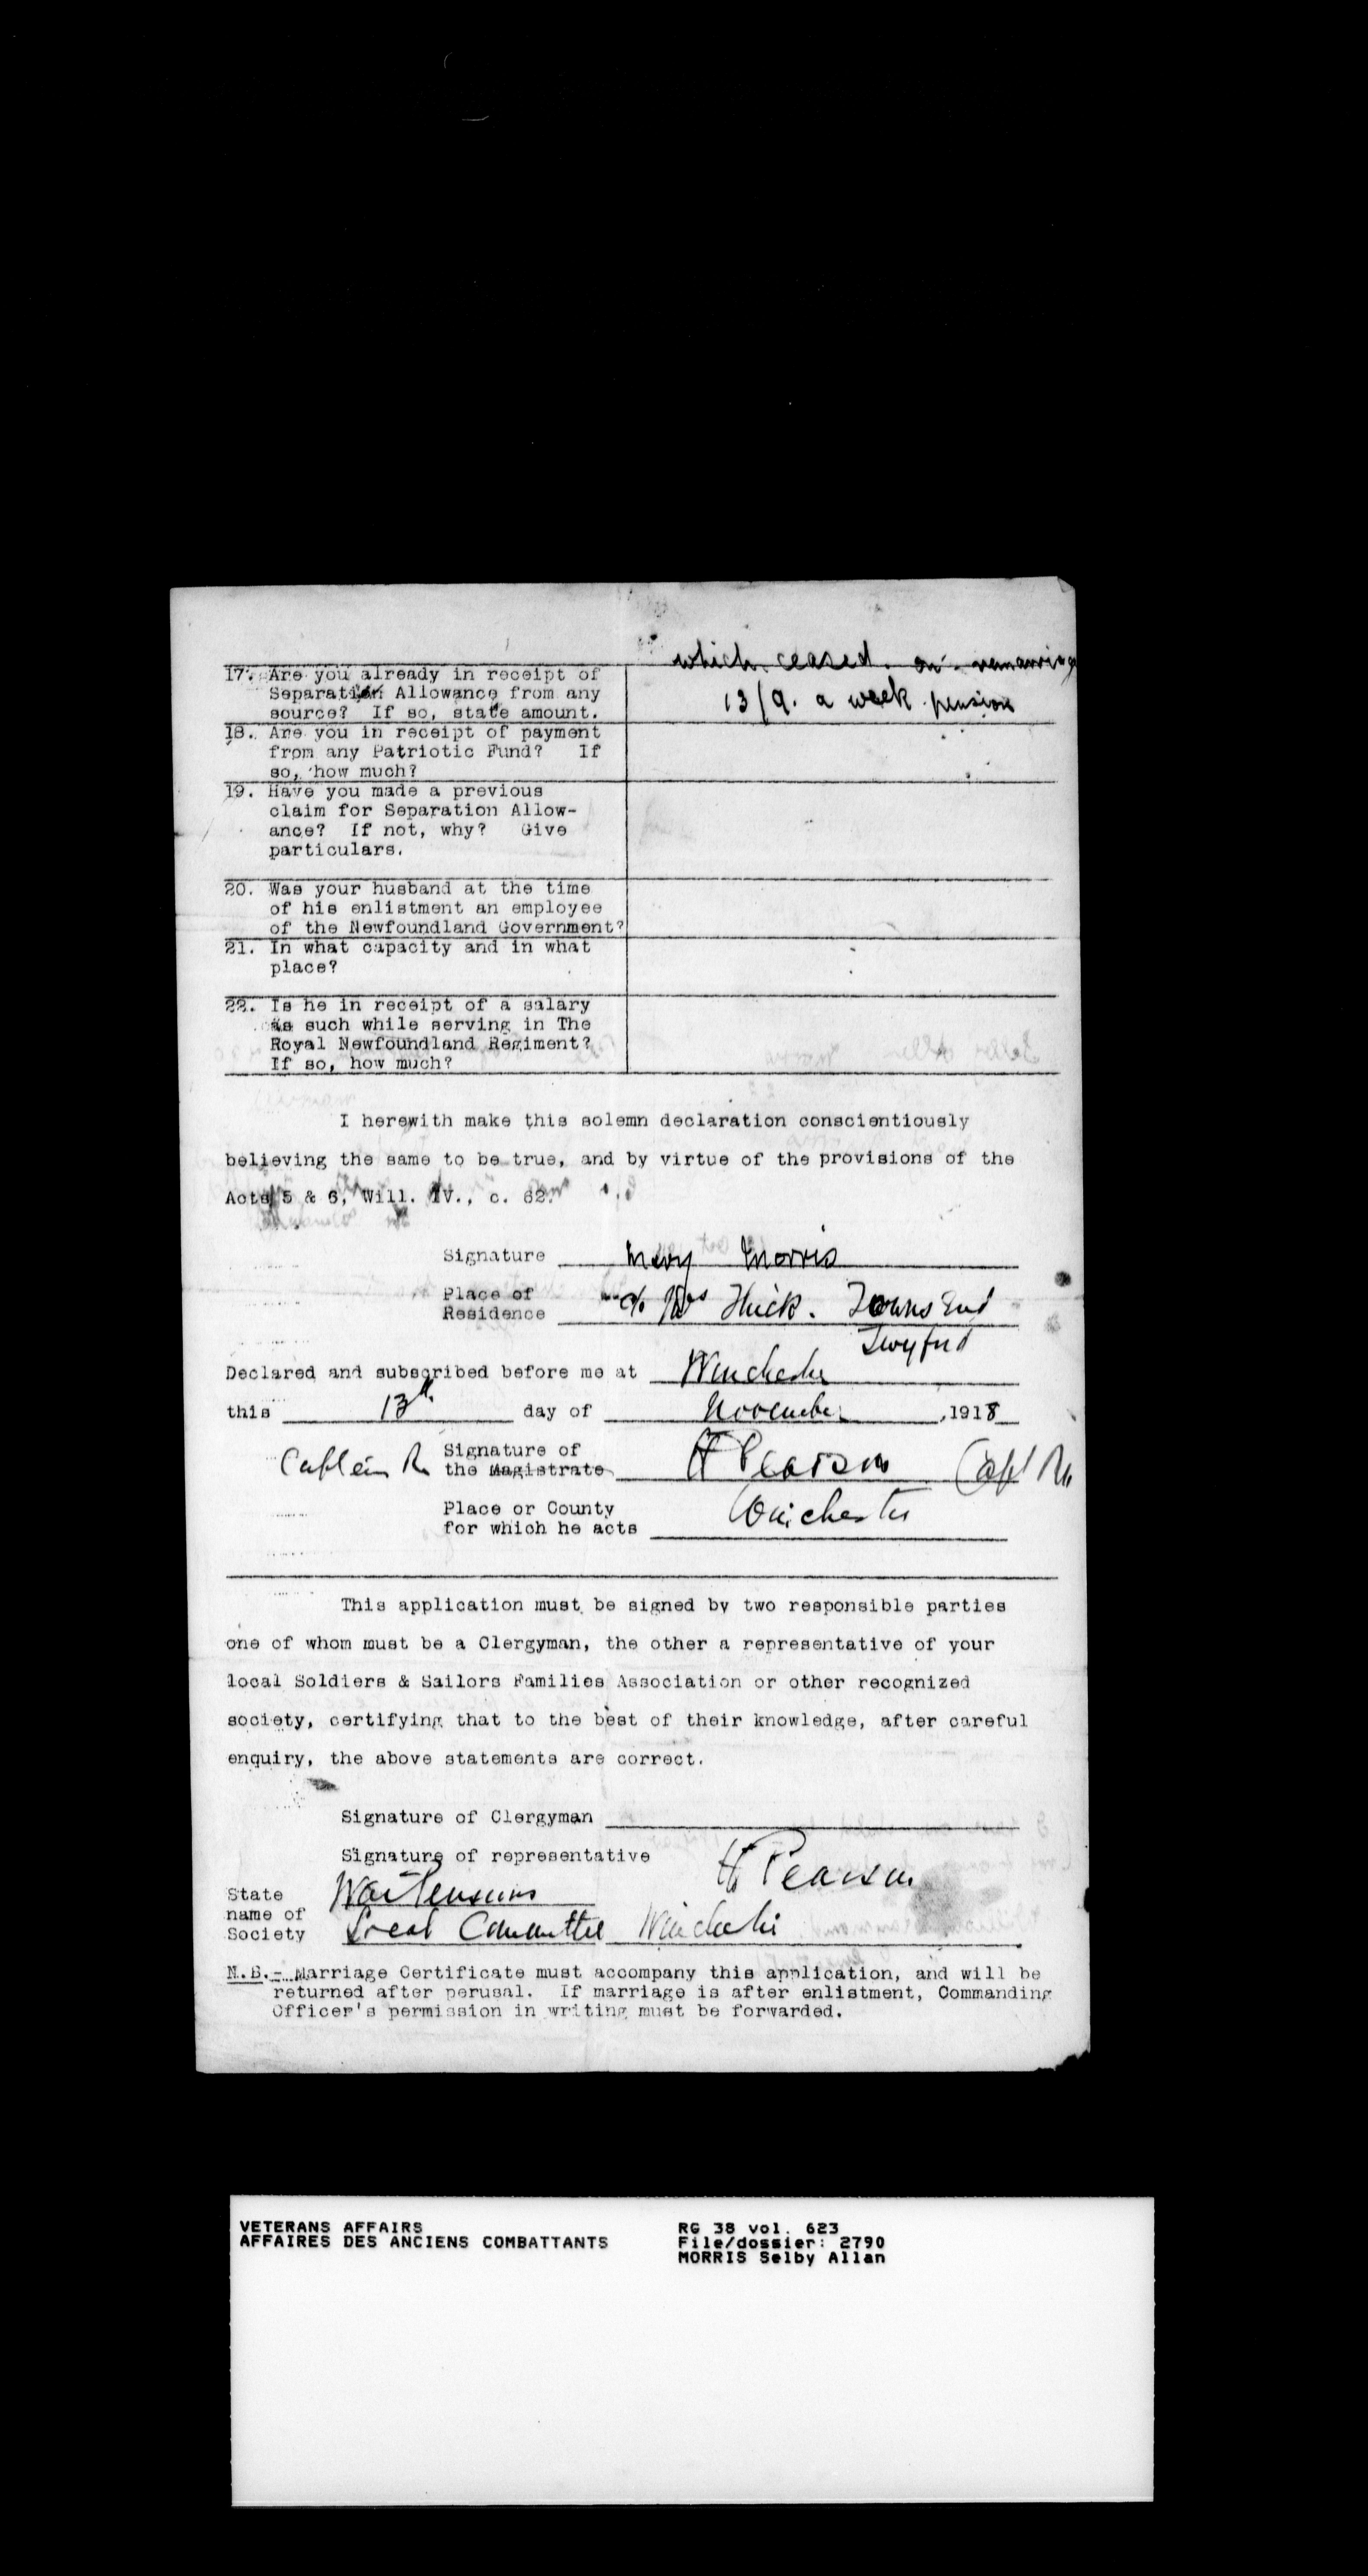 which ceased on remarriage
17. Are you already in receipt of
Separation Allowance from any
source? If so, state amount.
13/9. a week pension
18. Are you in receipt of payment
from any Patriotic Fund? If
so, how much?
19. Have you made a previous
claim for Separation Allow-
ance? If not, why? Give
particulars.
20. Was your husband at the time
of his enlistment an employee
of the Newfoundland Government?
21. In what capacity and in what
place?
22. Is he in receipt of a salary
as such while serving in The
Royal Newfoundland Regiment?
If so, how much?
I herewith make this solemn declaration conscientiously
believing the same to be true, and by virtue of the provisions of the
Acts 5 & 6, Will. IV., c. 62.
Signature Mary Morris
Place of
Residence c/o Mrs Towns End
Twyford
Declared and subscribed before me at Winchester
this 13th day of November, 1918
Signature of
Captain the Magistrate H Pearson Capt
Place or County
for which he acts Winchester
This application must be signed by two responsible parties
one of whom must be a Clergyman, the other a representative of your
local Soldiers & Sailors Families Association or other recognized
society, certifying that to the best of their knowledge, after careful
enquiry, the above statements are correct.
Signature of Clergyman
Signature of representative H Pearson
State
name of
Society
War Pensions
Local Committee Winchester
N.B.- Marriage Certificate must accompany this application, and will be
returned after perusal. If marriage is after enlistment, Commanding
Officer's permission in writing must be forwarded.
VETERANS AFFAIRS
AFFAIRES DES ANCIENS COMBATTANTS
RG 38 vol. 623
File/dossier: 2790
MORRIS Selby Allan